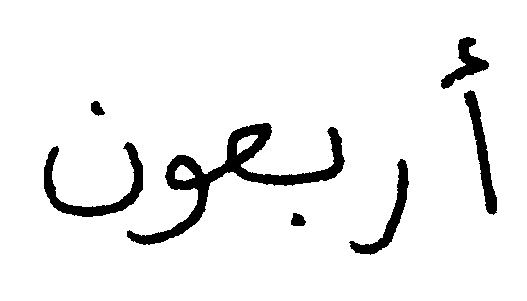 أربعون